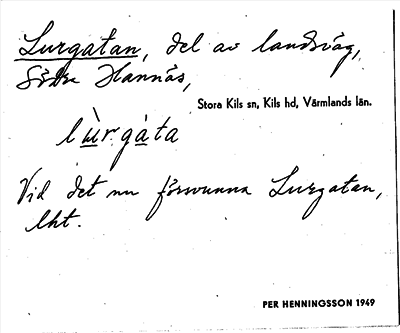 Lurgatan, del av landsväg,
Södra Hannäs,
Stora Kils sn, Kils hd, Värmlands län.
lùrgàta
Vid det nu försvunna Lurgatan,
lht.
PER HENNINGSSON 1949